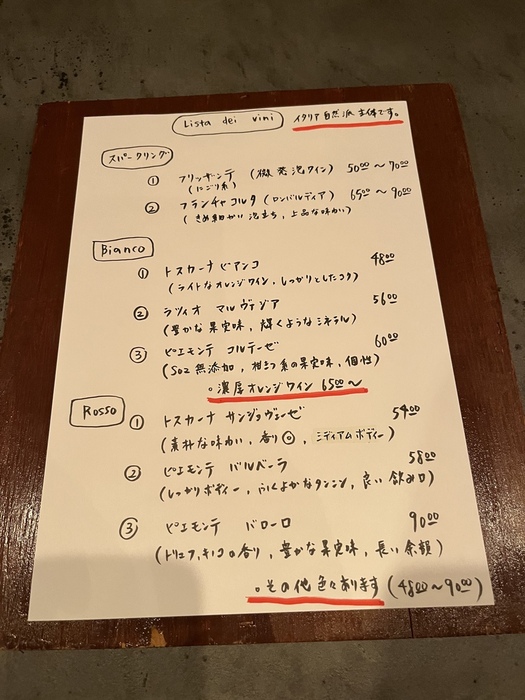 Lista dei vini
イタリア自然派主体です。
スパークリング
① フリッザンテ (微発泡ワイン) 5000〜7000
(にごり系)
② フランチャコルタ (ロンバルディア) 6500〜9000
(きめ細かい泡立ち、上品な味わい)
Bianco
① トスカーナ ビアンコ 4800
(ライトなオレンジワイン、しっかりとしたコク)
② ラツィオ マルヴァジア 5600
(豊かな果実味、輝くようなミネラル)
③ ピエモンテ コルテーゼ 6000
(SO2無添加、柑きつ系の果実味、個性)
。濃厚オレンジワイン 6500〜
Rosso
① トスカーナ サンジョヴェーゼ 5400
(素朴な味わい、香り◎、ミディアムボディー)
② ピエモンテ バルベーラ 5800
(しっかりボディー、ふくよかなタンニン、良い飲み口)
③ ピエモンテ バローロ 9000
(トリュフ、キノコの香り、豊かな果実味、長い余韻)
。その他色々あります (4800〜9000)